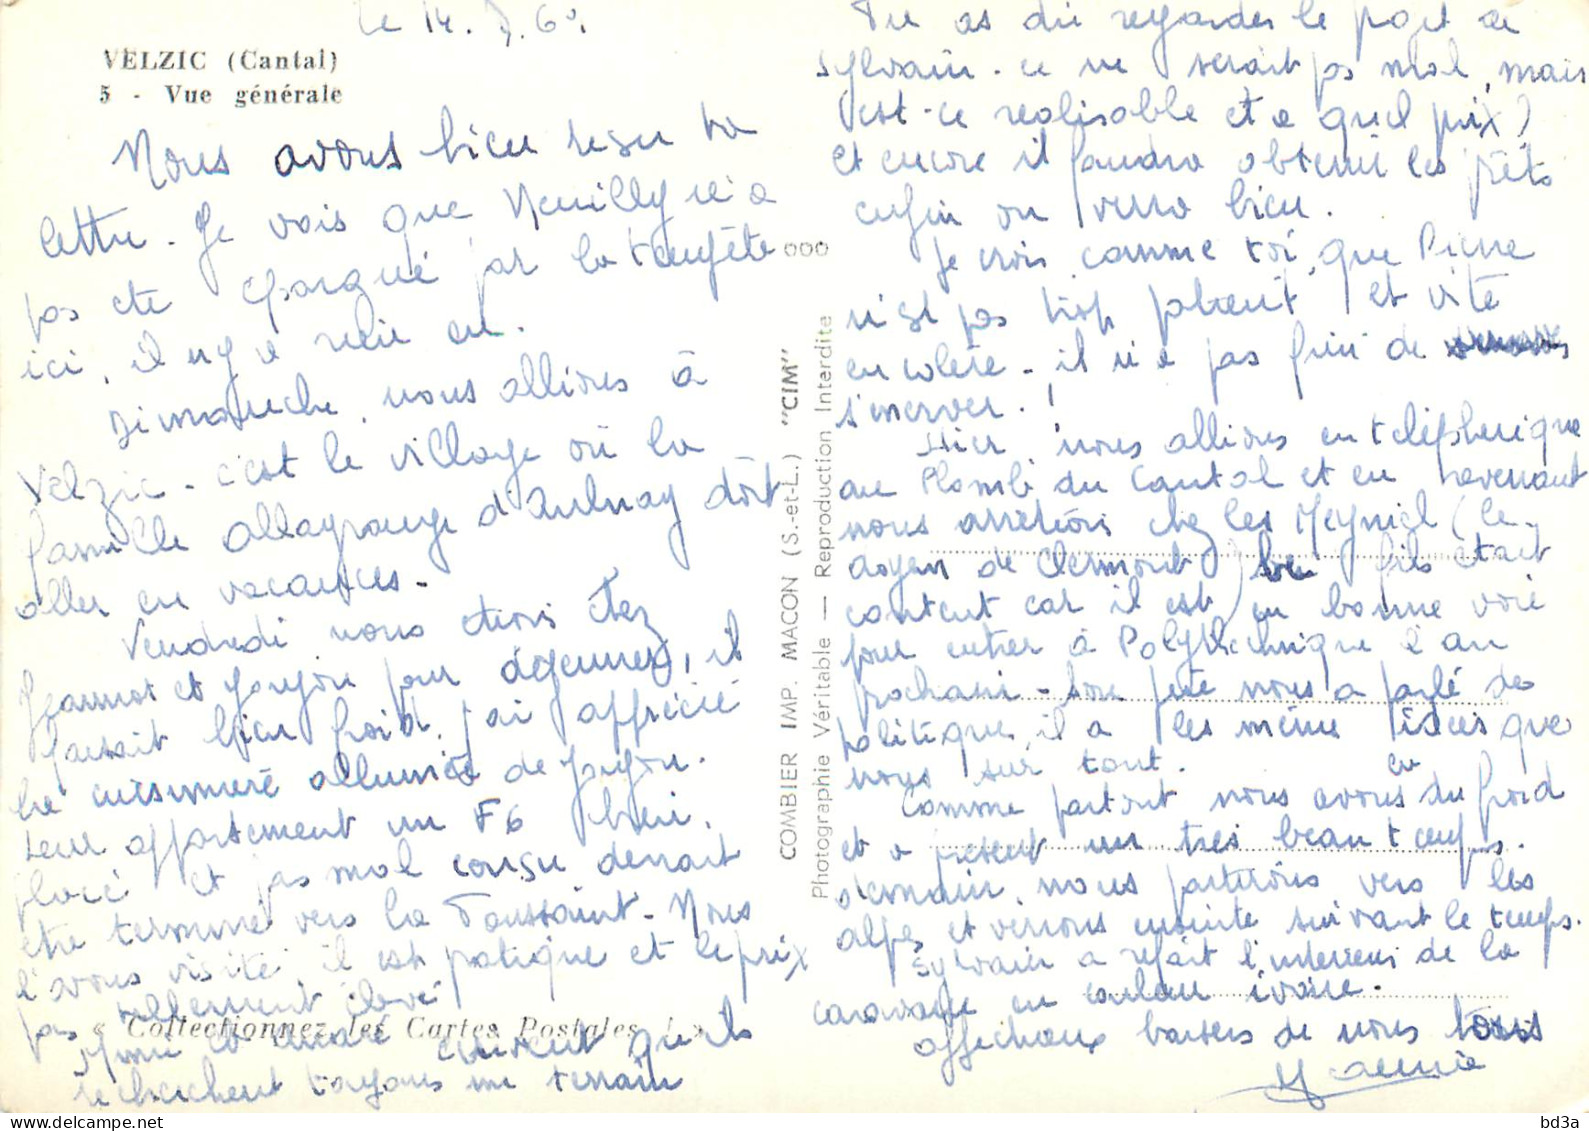 le 14. 7. 60.
VELZIC (Cantal)
5 - Vue générale
Nous avons bien reçu ta
lettre. Je vois que Neuilly n'a
pas été épargné par la tempête
ici, il n'y a rien eu.
Dimanche, nous allions à
Velzic - c'est le village où la
famille d'Aulnay doit
aller en vacances.
Vendredi nous étions chez
Jeannot et pour déjeuner, il
faisait bien froid, j'ai apprécié
la cuisinière allumée de
Leur appartement un F6 bien
placé et pas mal conçu devrait
être terminé vers la Toussaint. Nous
l'avons visité, il est pratique et le prix
pas tellement élevé
« Collectionnez les Cartes Postales ! »
et André qu'ils
recherchent toujours un terrain
Tu as dû regarder le projet de
Sylvain. ce ne serait pas mal, mais
est-ce réalisable et à quel prix ?
et encore il faudra obtenir les prêts
enfin on verra bien.
Je crois, comme toi, que Pierre
n'est pas trop patient et vite
en colère - il n'a pas fini de
s'énerver !
Hier, nous allions en téléphérique
au Plomb du Cantal et en revenant
nous arrêtions chez les Meyniel (le
doyen de Clermont) leur fils était
content car il est en bonne voie
pour entrer à Polythechnique l'an
prochain - Son père nous a parlé de
politique, il a les même idées que
nous sur tout.
Comme partout nous avons eu du froid
et à présent un très beau temps.
Demain, nous partirons vers les
alpes et verrons ensuite suivant le temps.
Sylvain a refait l'intérieur de la
caravane en couleur ivoire.
affectueux baisers de nous tous
COMBIER IMP. MACON (S.-et-L.) "CIM"
Photographie Véritable — Reproduction Interdite
bd3a